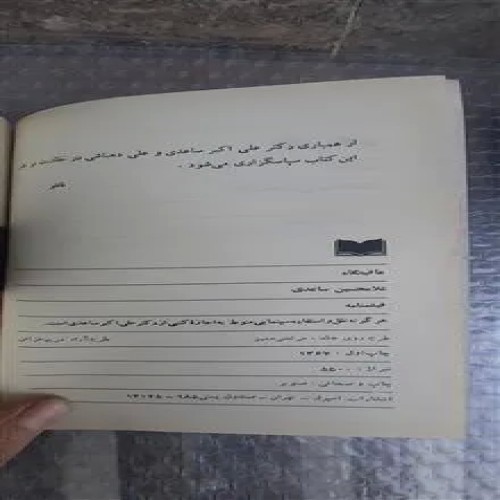 از همیاری دکتر علی اکبر ساعدی و علی دهباشی در
این کتاب سپاسگزاری می‌شود .
ناشر
عافیتگاه
غلامحسین ساعدی
فیلمنامه
هر گونه نقل و استفاده سینمایی منوط به اجازه کتبی از دکتر علی اکبر ساعدی است.
طرح روی جلد : مرتضی ممیز
چاپ اول : ۱۳۶۷
تیراژ : ۵۵۰۰
چاپ و صحافی :
انتشارات اسپرک - تهران - صندوق پستی